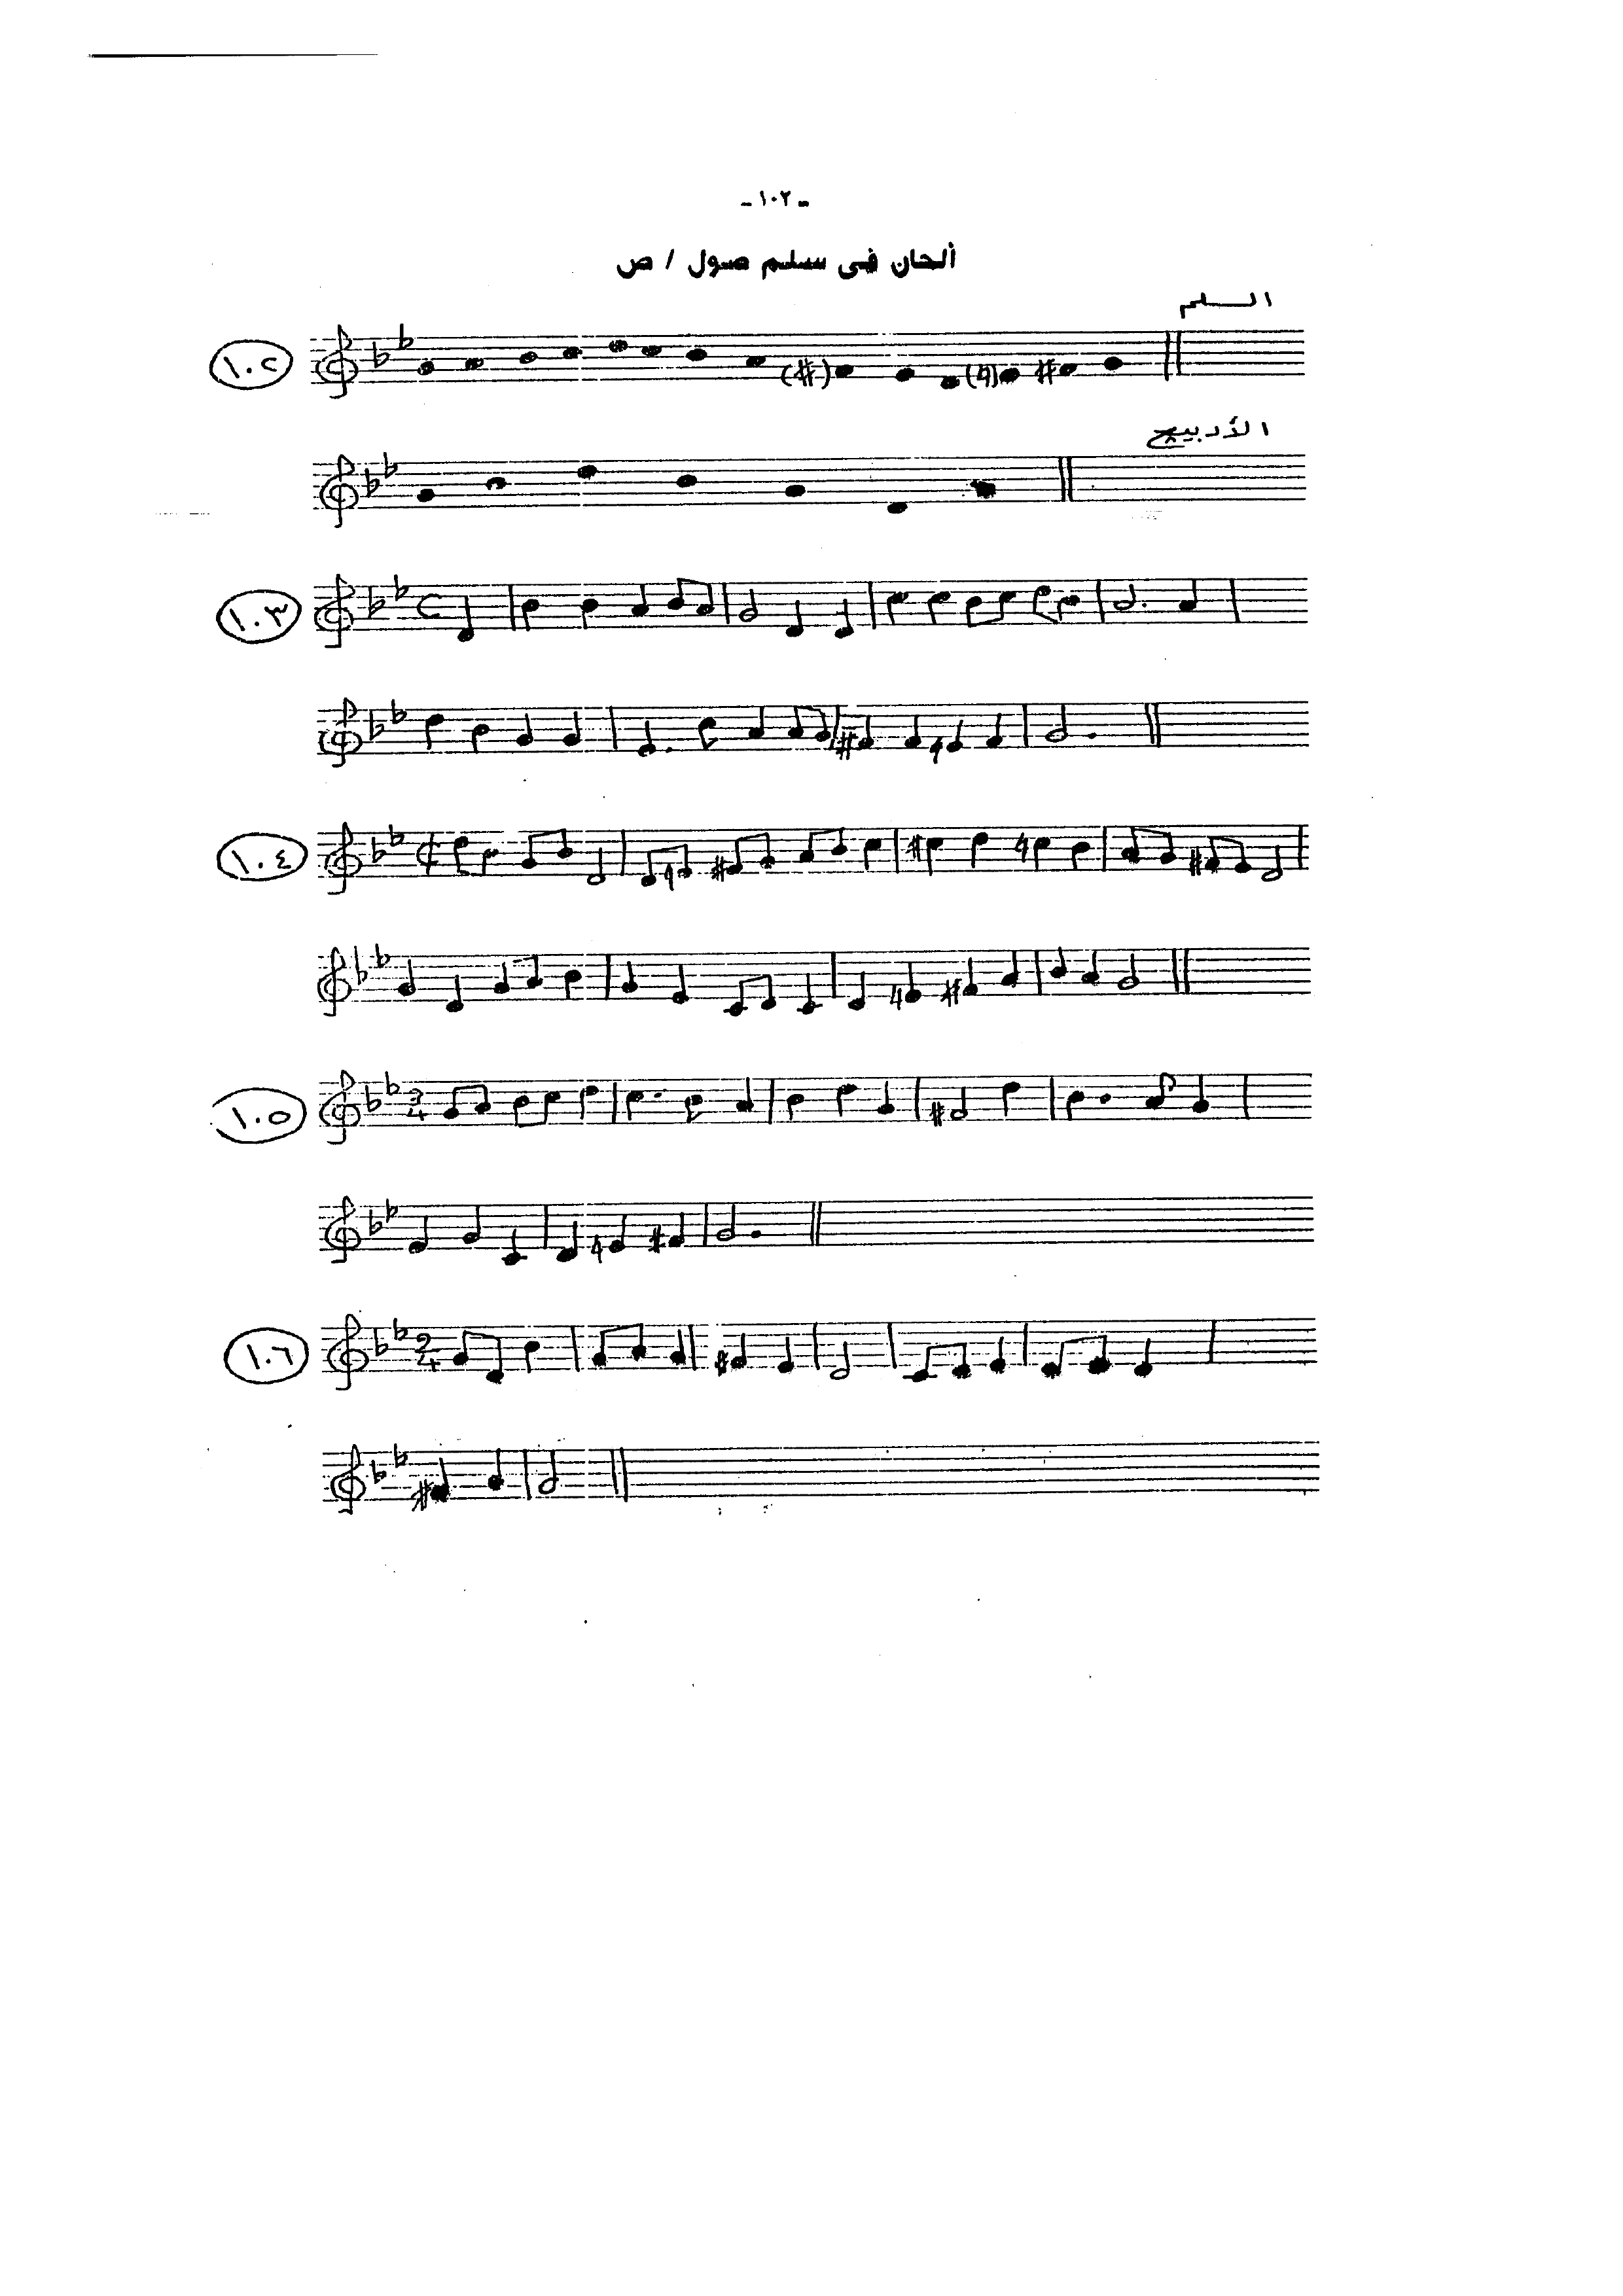 - ١٠٢ -
ألحان فى سلم صول / ص
السلم
١٠٢
الأربيج
١٠٣
١٠٤
١٠٥
3
4
١٠٦
2
4